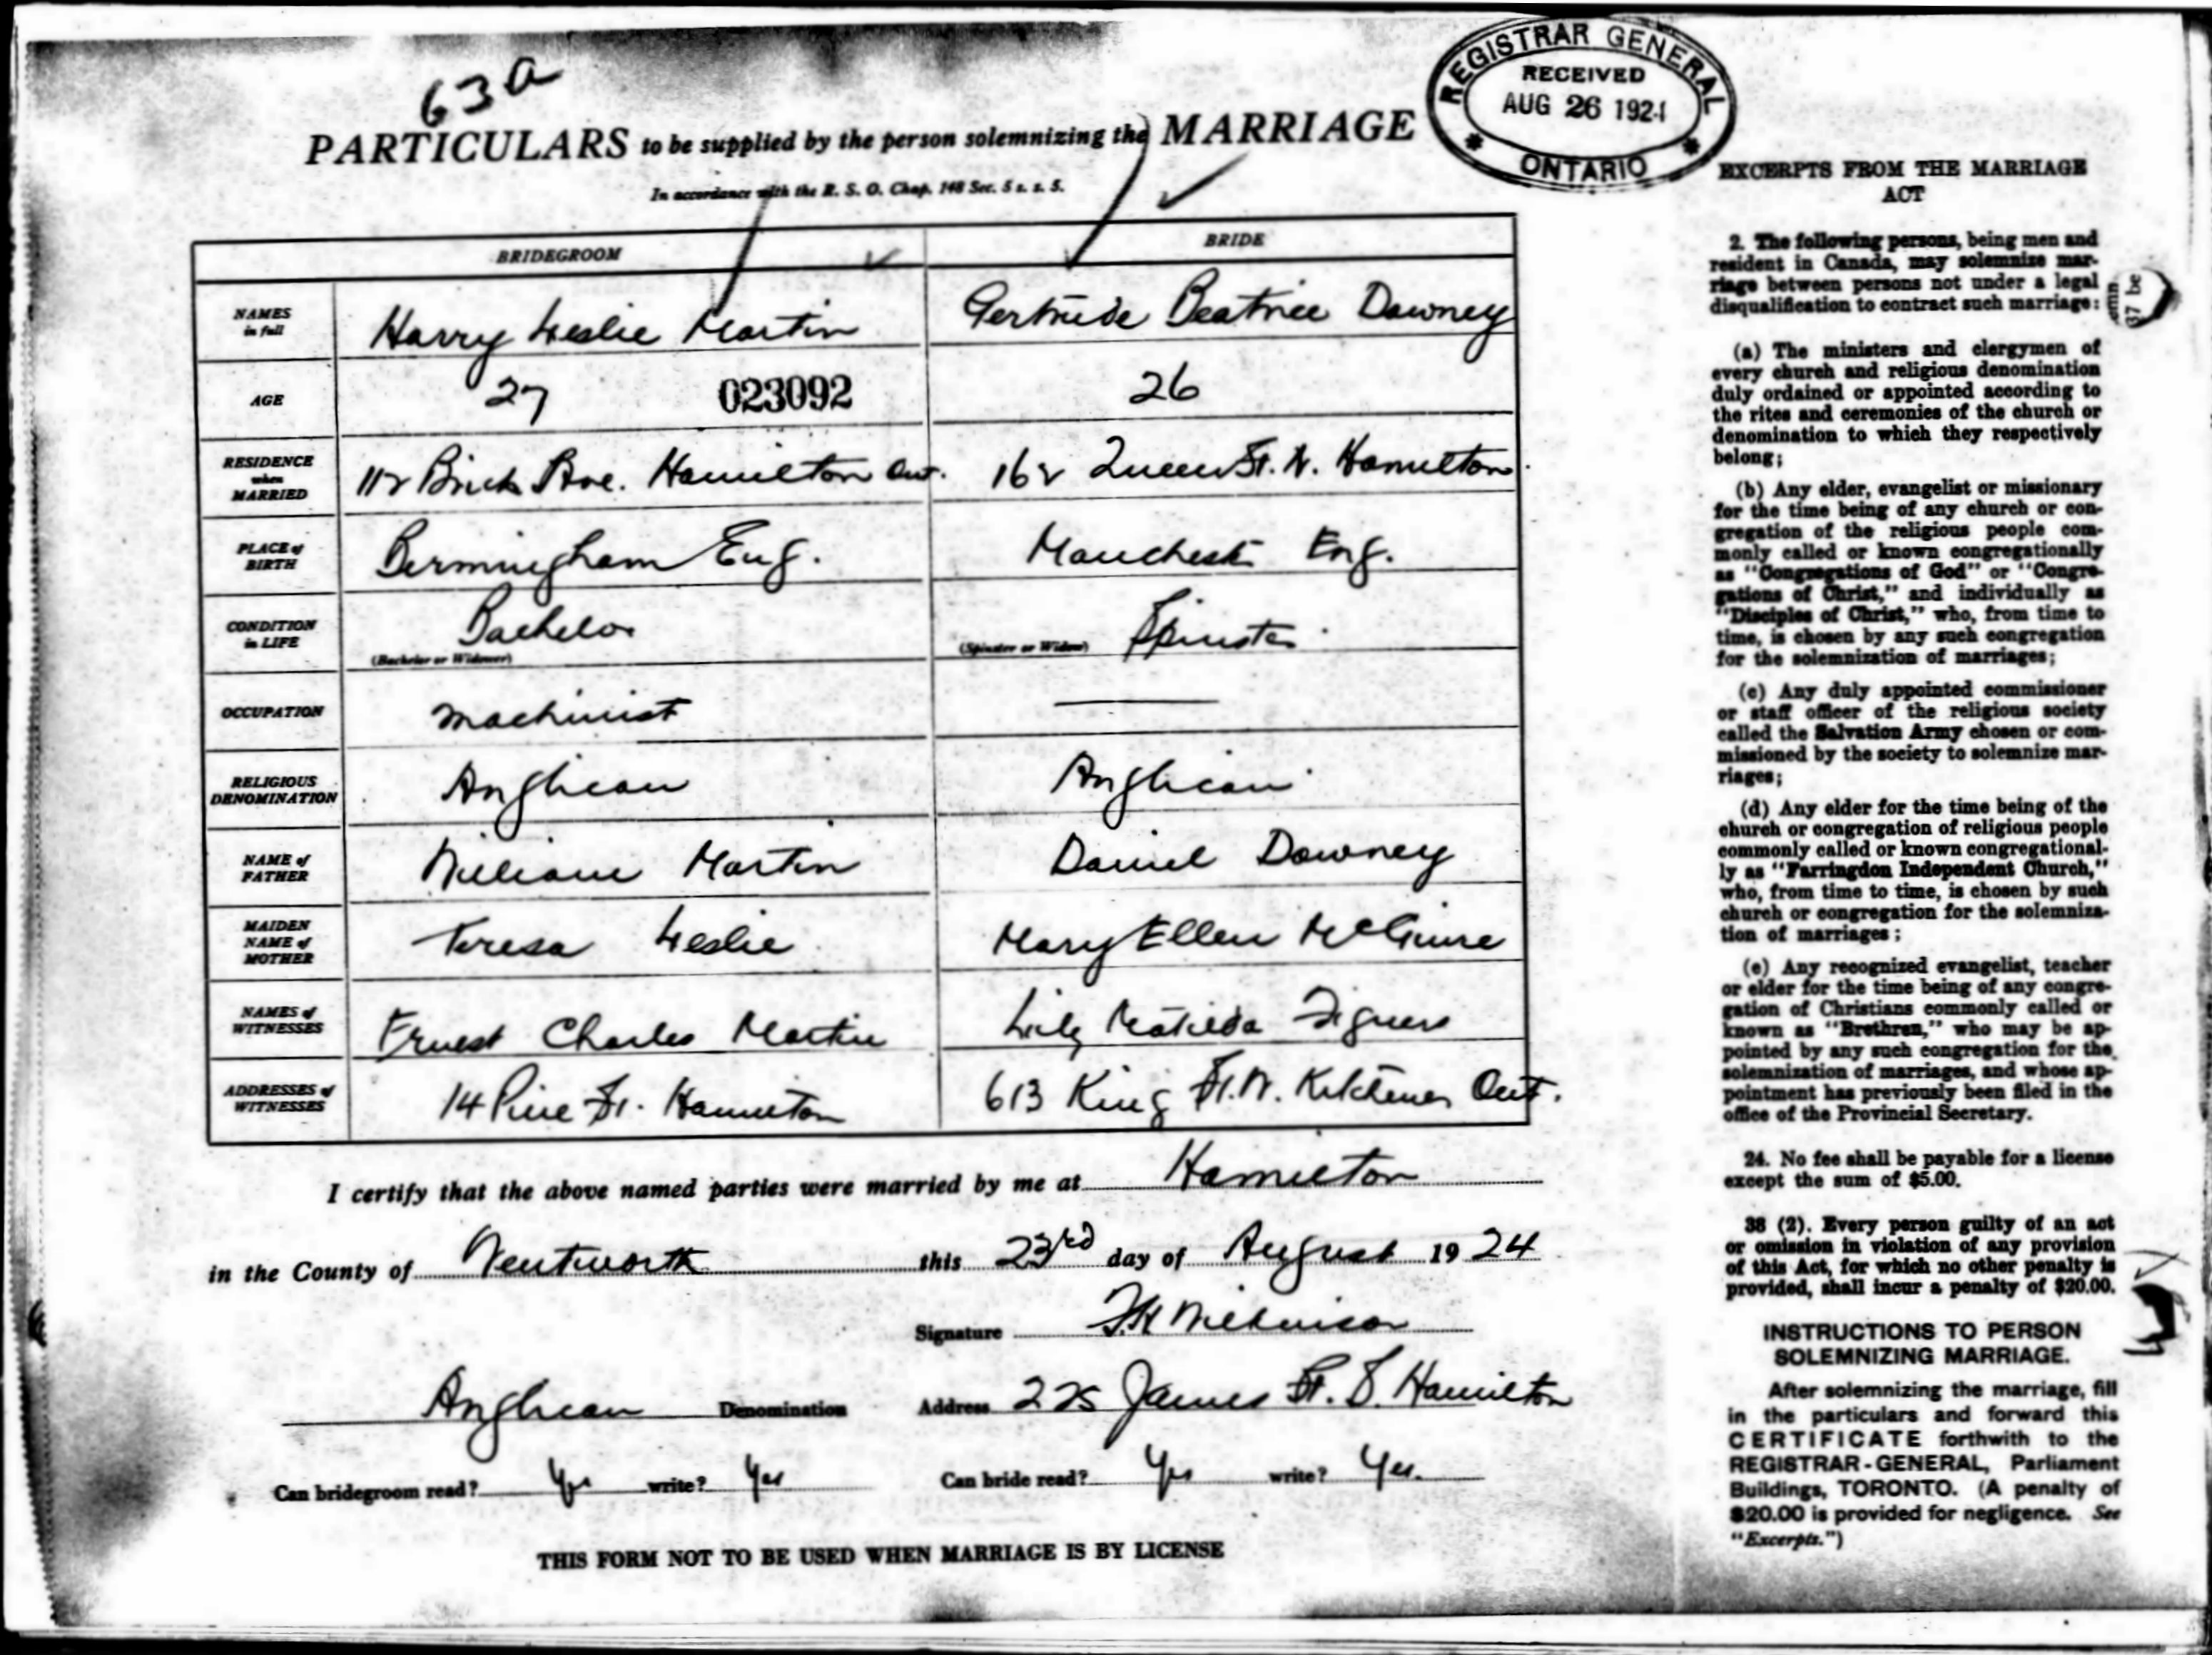 63a
REGISTRAR GENERAL
RECEIVED
AUG 26 1924
ONTARIO
PARTICULARS to be supplied by the person solemnizing the MARRIAGE
In accordance with the R. S. O. Chap. 148 Sec. 5 s. s. 5.
BRIDEGROOM BRIDE
NAMES in full Harry Leslie Martin Gertrude Beatrice Downey
AGE 27 023092 26
RESIDENCE when MARRIED 112 Ave. Hamilton Ont. 162 Queen St. N. Hamilton
PLACE of BIRTH Birmingham Eng. Manchester Eng.
CONDITION in LIFE (Bachelor or Widower) Bachelor (Spinster or Widow) Spinster
OCCUPATION machinist
RELIGIOUS DENOMINATION Anglican Anglican
NAME of FATHER William Martin Daniel Downey
MAIDEN NAME of MOTHER Teresa Leslie Mary Ellen McGuire
NAMES of WITNESSES Ernest Charles Martin Lily Matilda
ADDRESSES of WITNESSES 14 Pine St. Hamilton 613 King St. W. Kitchener Ont.
I certify that the above named parties were married by me at Hamilton
in the County of Wentworth this 23rd day of August 1924
Signature
Anglican Denomination Address 225 James St. S. Hamilton
Can bridegroom read? Yes write? Yes Can bride read? Yes write? Yes.
THIS FORM NOT TO BE USED WHEN MARRIAGE IS BY LICENSE
EXCERPTS FROM THE MARRIAGE
ACT
2. The following persons, being men and
resident in Canada, may solemnize mar-
riage between persons not under a legal
disqualification to contract such marriage:
(a) The ministers and clergymen of
every church and religious denomination
duly ordained or appointed according to
the rites and ceremonies of the church or
denomination to which they respectively
belong;
(b) Any elder, evangelist or missionary
for the time being of any church or con-
gregation of the religious people com-
monly called or known congregationally
as "Congregations of God" or "Congre-
gations of Christ," and individually as
"Disciples of Christ," who, from time to
time, is chosen by any such congregation
for the solemnization of marriages;
(c) Any duly appointed commissioner
or staff officer of the religious society
called the Salvation Army chosen or com-
missioned by the society to solemnize mar-
riages;
(d) Any elder for the time being of the
church or congregation of religious people
commonly called or known congregational-
ly as "Farringdon Independent Church,"
who, from time to time, is chosen by such
church or congregation for the solemniza-
tion of marriages;
(e) Any recognized evangelist, teacher
or elder for the time being of any congre-
gation of Christians commonly called or
known as "Brethren," who may be ap-
pointed by any such congregation for the
solemnization of marriages, and whose ap-
pointment has previously been filed in the
office of the Provincial Secretary.
24. No fee shall be payable for a license
except the sum of $5.00.
38 (2). Every person guilty of an act
or omission in violation of any provision
of this Act, for which no other penalty is
provided, shall incur a penalty of $20.00.
INSTRUCTIONS TO PERSON
SOLEMNIZING MARRIAGE.
After solemnizing the marriage, fill
in the particulars and forward this
CERTIFICATE forthwith to the
REGISTRAR-GENERAL, Parliament
Buildings, TORONTO. (A penalty of
$20.00 is provided for negligence. See
"Excerpts.")